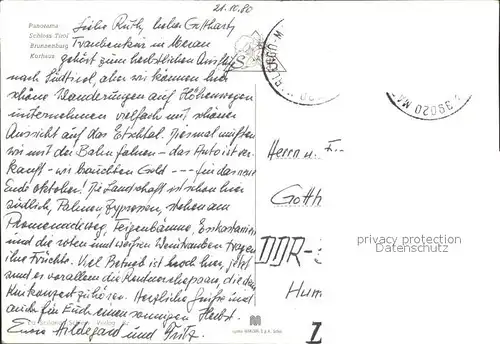 21.10.80
Panorama
Schloss Tirol
Brunnenburg
Kurhaus
Liebe Ruth, lieber Gotthard,
Traubenkur in Meran
gehört zum herbstlichen Ausflug
nach Südtirol, aber wir können hier
schöne Wanderungen auf Höhenwegen
unternehmen vielfach mit schöner
Aussicht auf das Etschtal. Diesmal mußten
wir mit der Bahn fahren - das Auto ist ver-
kauft - wir brauchten Geld --- für das neue
Ende Oktober! Die Landschaft ist schon hier
südlich, Palmen, Zypressen, stehen am
Promenadeweg, Feigenbäume, Esskastanien
und die roten und weißen Weintrauben tragen
ihre Früchte. Viel Betrieb ist noch hier, jetzt
sind es vor allem die Rentnerehepaare, die dem
Kurkonzert zuhören. Herzliche Grüße und
auch für Euch einen sonnigen Herbst.
Eure Hildegard und Fritz.
39020 MA
Herrn u. F
Gotth
DDR-
Hum
privacy protection
Datenschutz